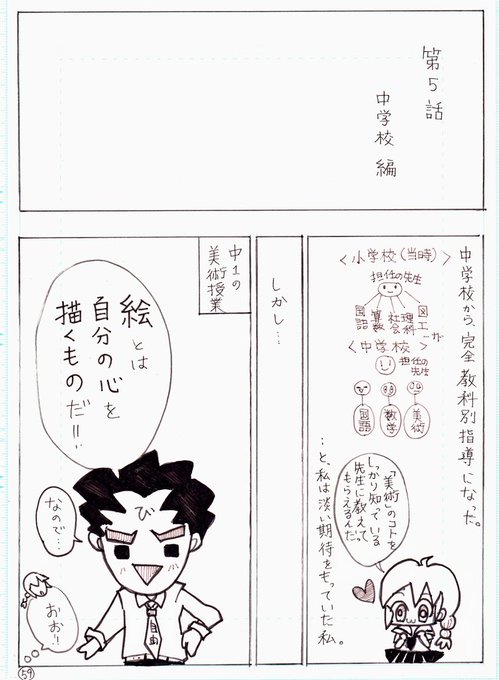 第5話
中学校 編
中学校から、完全教科別指導になった。
<小学校(当時)>
担任の先生
国語
算数
社会
理科
図工
<中学校>
担任の先生
国語
数学
美術
「美術」のコトを
しっかり知っている
先生に教えて
もらえるんだ。
…と、私は淡い期待をもっていた私。
しかし…
中1の
美術授業
絵とは
自分の心を
描くものだ!!
び
自由
なので…
おお!!
59